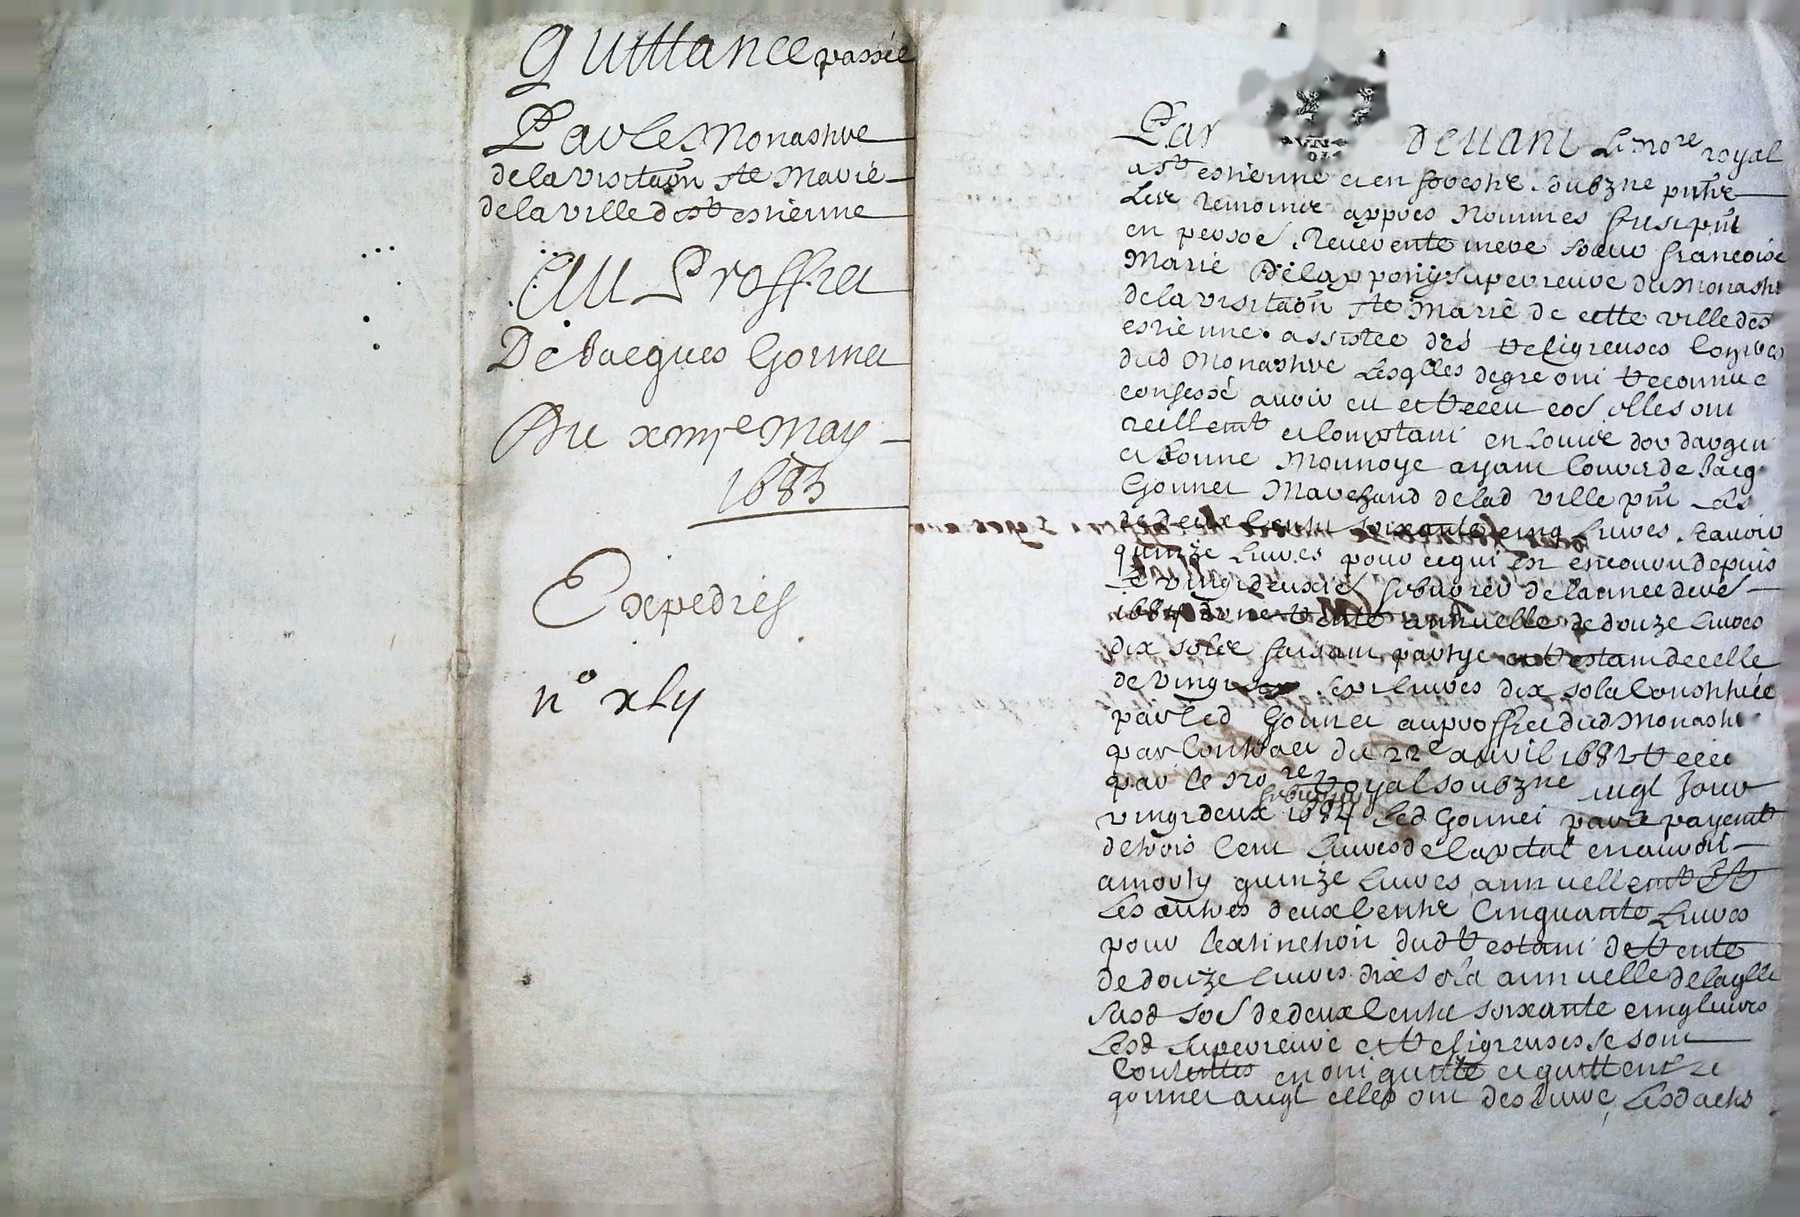 Quittance passée
Par le Monastre
de la visitaõn Ste Marie
de la ville de st estienne
Au Proffict
De Jacques Gonnet
Du xiiije May
1685
Expedrés
n° xly
Par devant le nore royal
a st estienne et en forestz soubzne
temoincz appres nommes
en persoe Reverente mere soeur francoise
Marie superreure du Monastre
de la visitaõn Ste Marie de cette ville de st
estienne assistee des religieuses
dud Monastre lesqlles de gre ont reconnu et
confessé avoir eu et receu elles ont
reellemt et comptant en Louis dor dargent
et bonne Monnoye ayant cours de Jacq
Gonnet Marchand de lad ville
de deux centz soixante cinq livres scavoir
quinze livres pour ce qui est encouru depuis
le vingt deuxie febvrier de lannee dere
1684 dune rente annuelle de douze livres
dix solz faisant partye et restant de celle
de vingt sept livres dix solz constituée
par led Gonnet au proffict dud Monastre
par contract du 22e avril 1682 receu
par le nore royal soubzne jour
vingt deux febvrier 1684 led Gonnet par le payemt
de trois cent livres de capital en avoit
amorty quinze livres annuellemt Et
les autres deux centz cinquante livres
pour lextinction dud restant de rente
de douze livres dix solz annuelle de laqlle
susd soe de deux centz soixante cinq livres
lesd superreure et religieuses se sont
contenttes en ont quitté et quittent le
gonnet auql elles ont des livré lesd actes